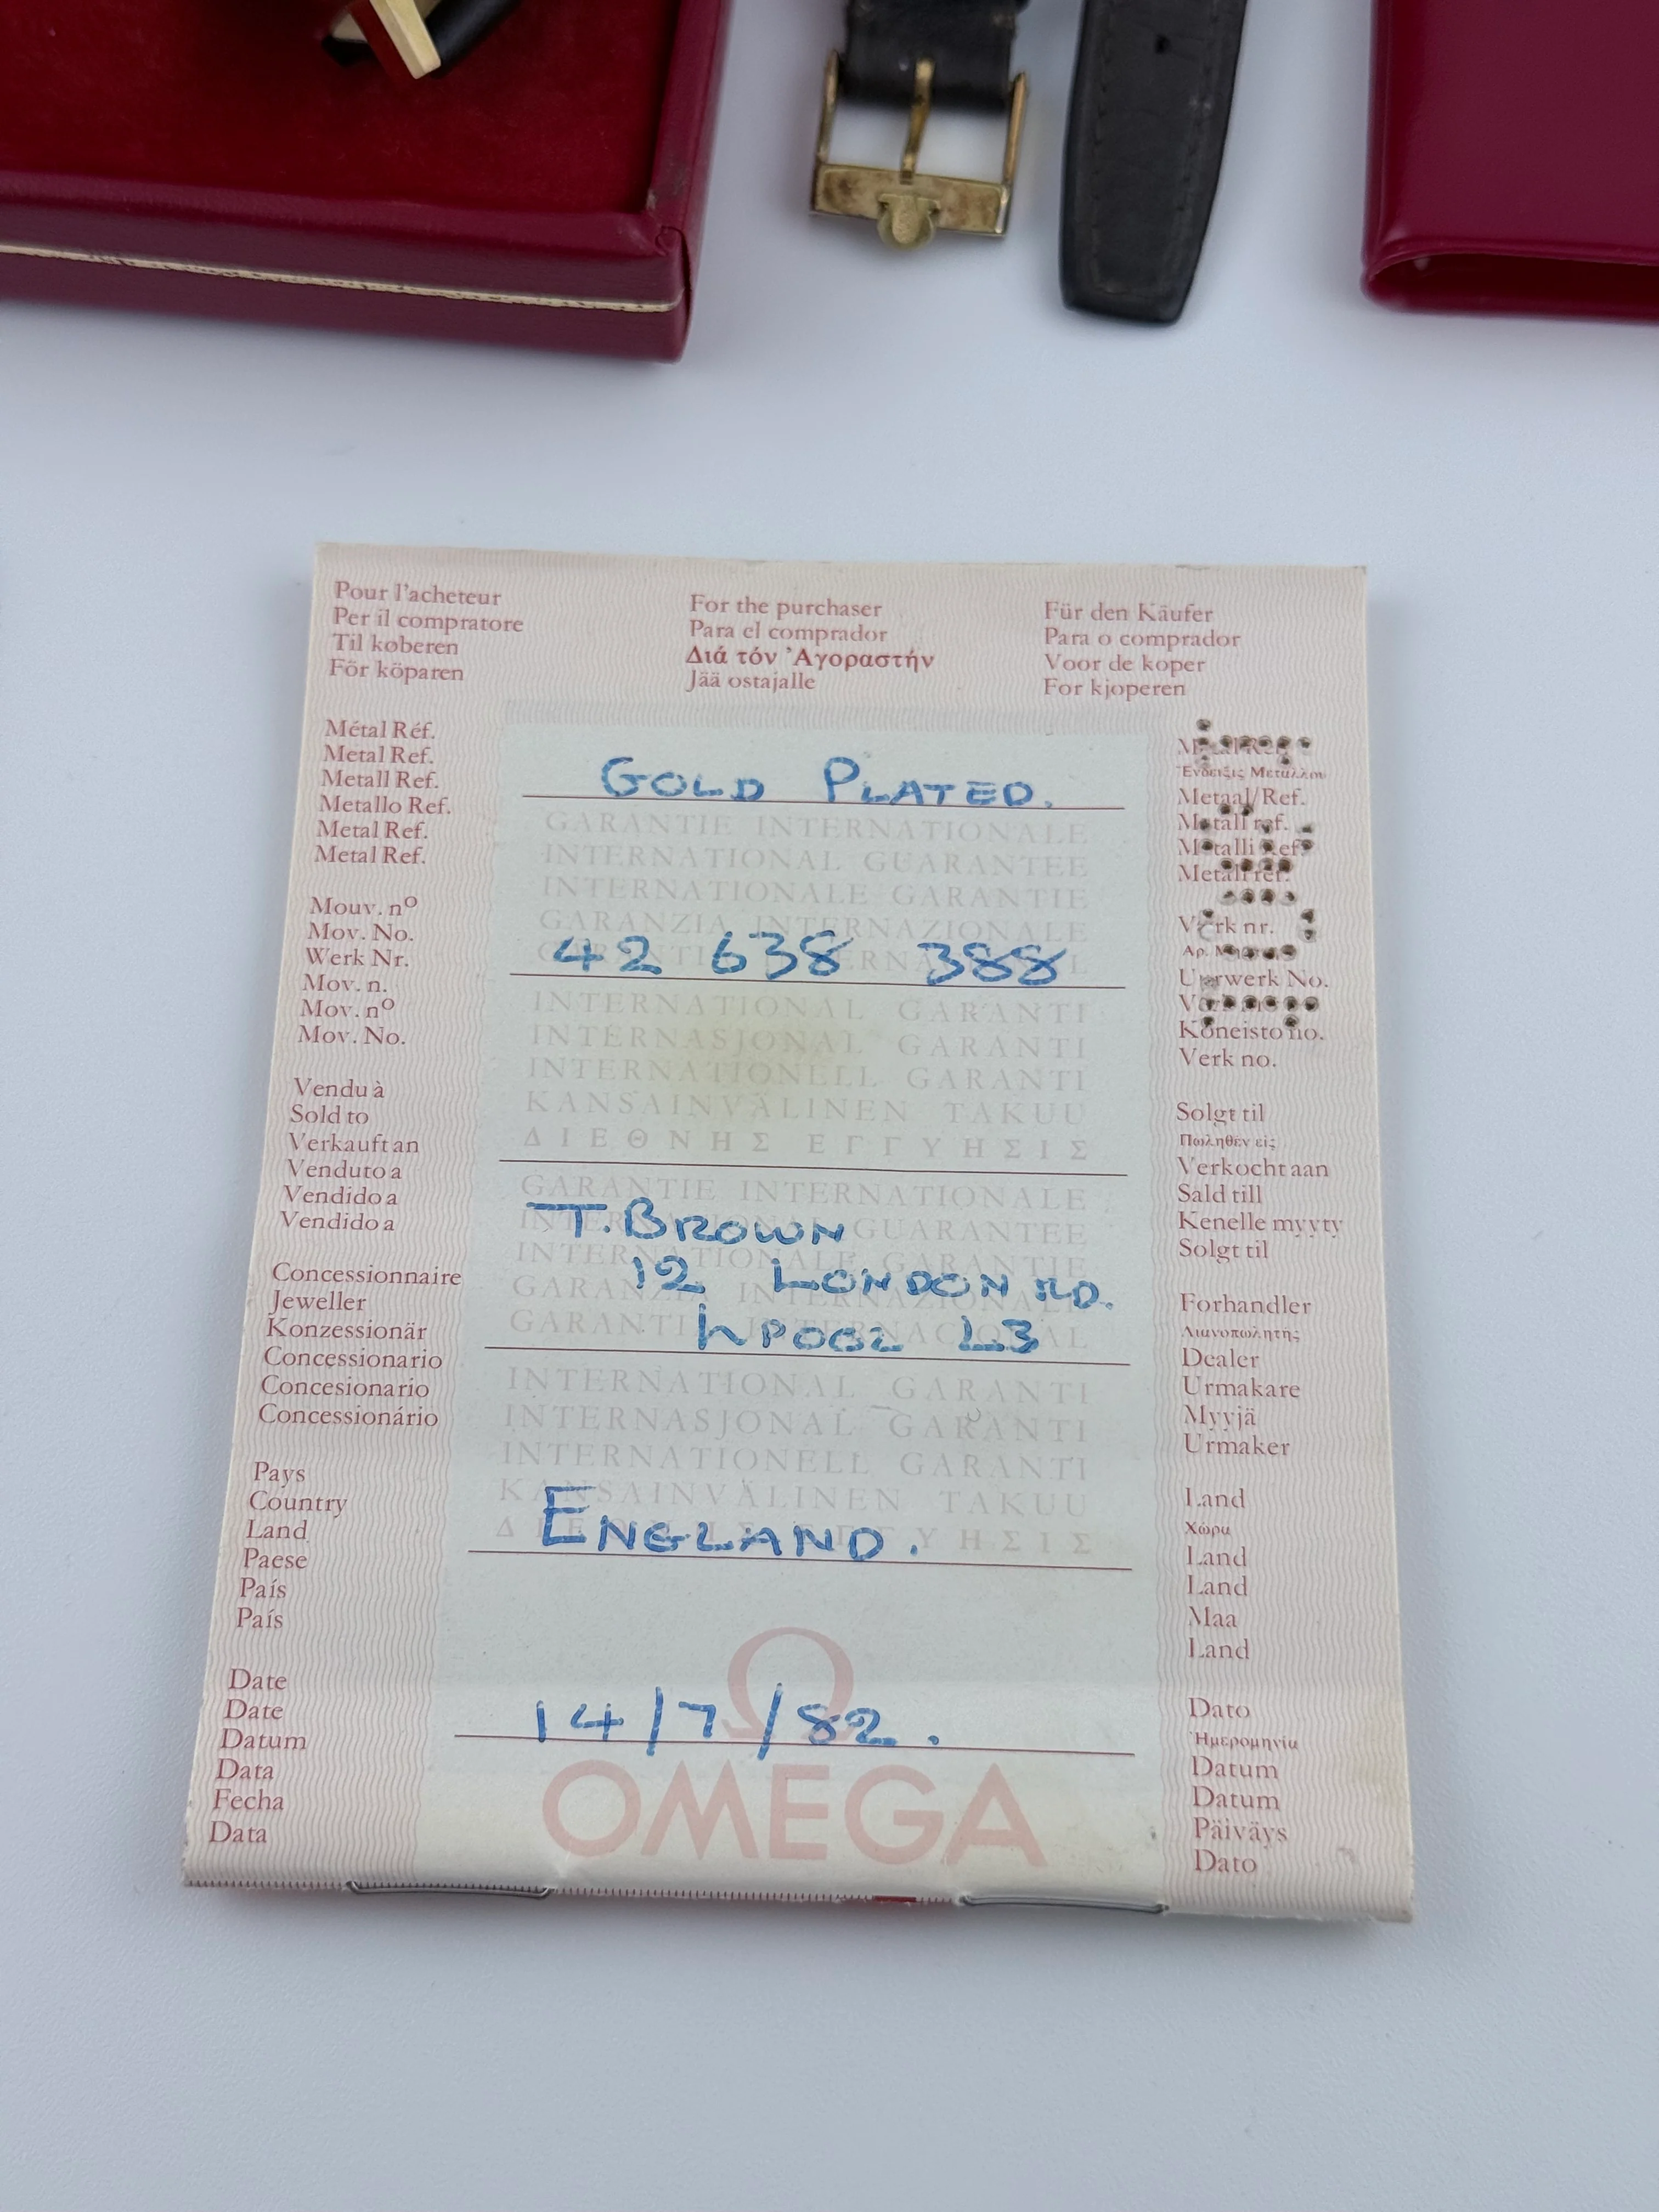 Pour l'acheteur
Per il compratore
Til køberen
För köparen
For the purchaser
Para el comprador
Διά τόν Ἀγοραστήν
Jää ostajalle
Für den Käufer
Para o comprador
Voor de koper
For kjøperen
Métal Réf.
Metal Ref.
Metall Ref.
Metallo Ref.
Metal Ref.
Metal Ref.
GOLD PLATED.
Metal Ref.
Ἔνδειξις Μετάλλου
Metaal/Ref.
Metall ref.
Metalli Ref.
Metall ref.
GARANTIE INTERNATIONALE
INTERNATIONAL GUARANTEE
INTERNATIONALE GARANTIE
GARANZIA INTERNAZIONALE
Mouv. nº
Mov. No.
Werk Nr.
Mov. n.
Mov. nº
Mov. No.
42 638 388
Værk nr.
Uurwerk No.
Koneisto no.
Verk no.
INTERNATIONAL GARANTI
INTERNASJONAL GARANTI
INTERNATIONELL GARANTI
KANSAINVÄLINEN TAKUU
ΔΙΕΘΝΗΣ ΕΓΓΥΗΣΙΣ
Vendu à
Sold to
Verkauft an
Venduto a
Vendido a
Vendido a
Solgt til
Πωληθέν εἰς
Verkocht aan
Sald till
Kenelle myyty
Solgt til
GARANTIE INTERNATIONALE
INTERNATIONAL GUARANTEE
INTERNATIONALE GARANTIE
GARANZIA INTERNAZIONALE
GARANTI INTERNACIONAL
T. BROWN
12 LONDON RD.
LPOOL L3
Concessionnaire
Jeweller
Konzessionär
Concessionario
Concesionario
Concessionário
Forhandler
Λιανοπωλητής
Dealer
Urmakare
Myyjä
Urmaker
INTERNATIONAL GARANTI
INTERNASJONAL GARANTI
INTERNATIONELL GARANTI
KANSAINVÄLINEN TAKUU
ΔΙΕΘΝΗΣ ΕΓΓΥΗΣΙΣ
Pays
Country
Land
Paese
País
País
ENGLAND.
Land
Χώρα
Land
Land
Maa
Land
Date
Date
Datum
Data
Fecha
Data
14/7/82.
Dato
Ἡμερομηνία
Datum
Datum
Päiväys
Dato
Ω
OMEGA